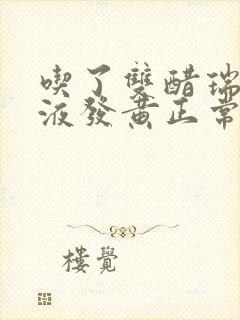 喫了雙醋瑞
液發黃正常
樓覺